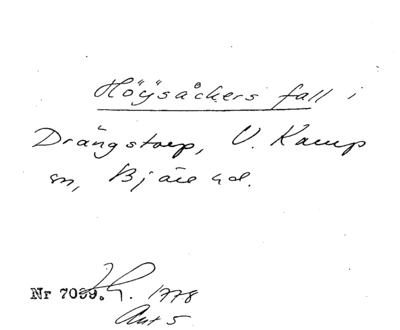 Höÿsåckers fall i
Drängstorp, V. Karup
sn, Bjäre hd.
Nr 7059. 1778
Art 5